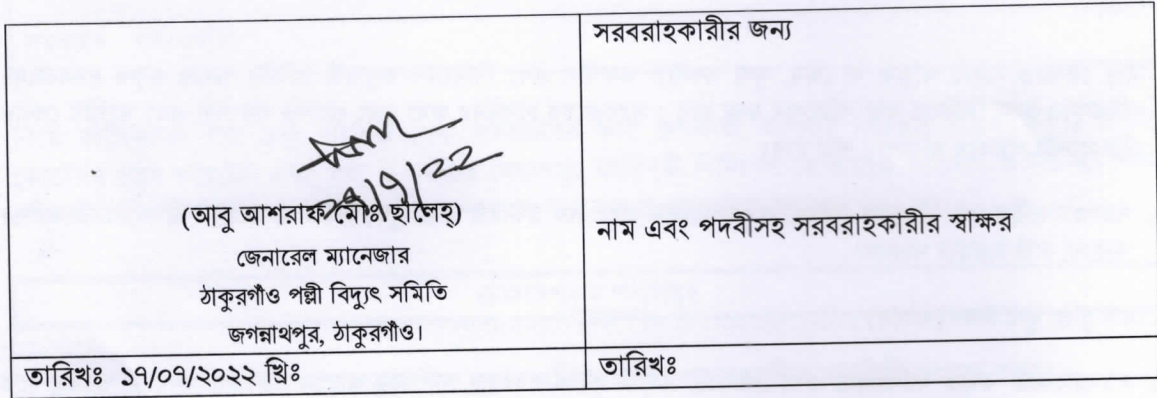 সরবরাহকারীর জন্য
(আবু আশরাফ মোঃ ছালেহ্)
জেনারেল ম্যানেজার
ঠাকুরগাঁও পল্লী বিদ্যুৎ সমিতি
জগন্নাথপুর, ঠাকুরগাঁও।
নাম এবং পদবীসহ সরবরাহকারীর স্বাক্ষর
তারিখঃ ১৭/০৭/২০২২ খ্রিঃ
তারিখঃ